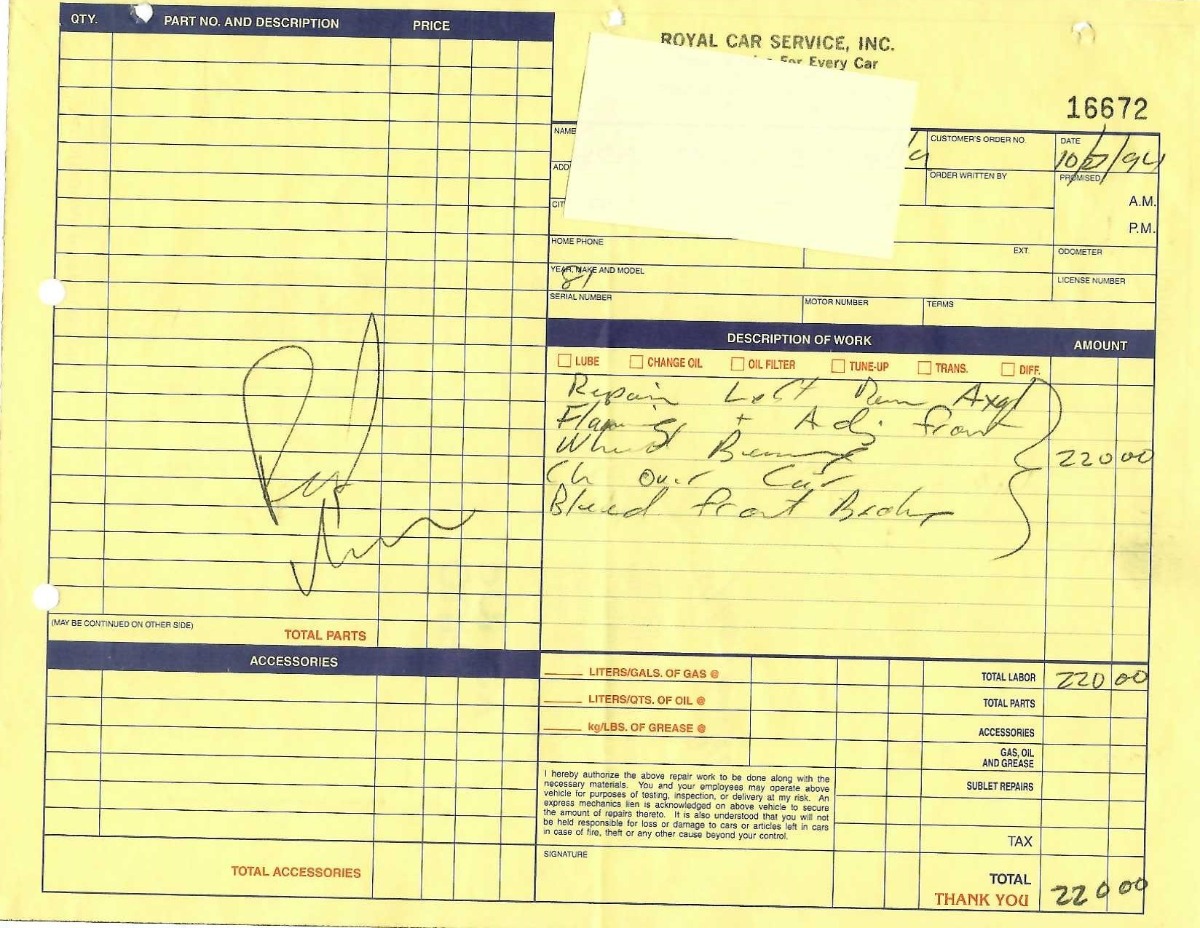 QTY. PART NO. AND DESCRIPTION PRICE
ROYAL CAR SERVICE, INC.
For Every Car
16672
NAME
CUSTOMER'S ORDER NO.
DATE
10/ /94
ADD
ORDER WRITTEN BY
PROMISED
A.M.
P.M.
CIT
HOME PHONE
EXT.
ODOMETER
YEAR, MAKE AND MODEL
81
LICENSE NUMBER
SERIAL NUMBER
MOTOR NUMBER
TERMS
DESCRIPTION OF WORK AMOUNT
LUBE CHANGE OIL OIL FILTER TUNE-UP TRANS. DIFF.
Repair Left
+ Adj front
220 00
Ch Over Car
Bleed front
(MAY BE CONTINUED ON OTHER SIDE)
TOTAL PARTS
ACCESSORIES
TOTAL ACCESSORIES
LITERS/GALS. OF GAS @
LITERS/QTS. OF OIL @
kg/LBS. OF GREASE @
TOTAL LABOR 220 00
TOTAL PARTS
ACCESSORIES
GAS, OIL
AND GREASE
SUBLET REPAIRS
I hereby authorize the above repair work to be done along with the
necessary materials. You and your employees may operate above
vehicle for purposes of testing, inspection, or delivery at my risk. An
express mechanics lien is acknowledged on above vehicle to secure
the amount of repairs thereto. It is also understood that you will not
be held responsible for loss or damage to cars or articles left in cars
in case of fire, theft or any other cause beyond your control.
SIGNATURE
TAX
TOTAL 220 00
THANK YOU